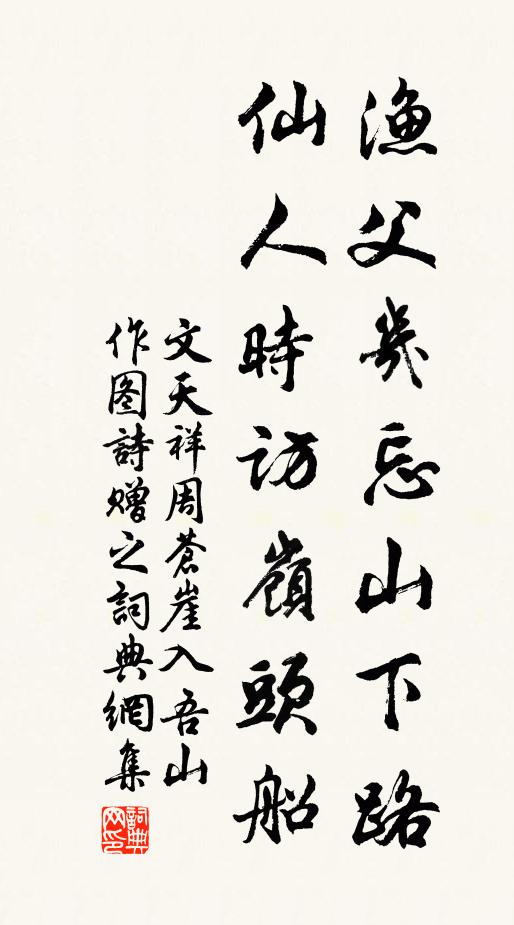 漁父幾忘山下路
仙人時訪嶺頭船
文天祥周蒼崖入吾山
作图詩赠之詞典網集
詞典網印